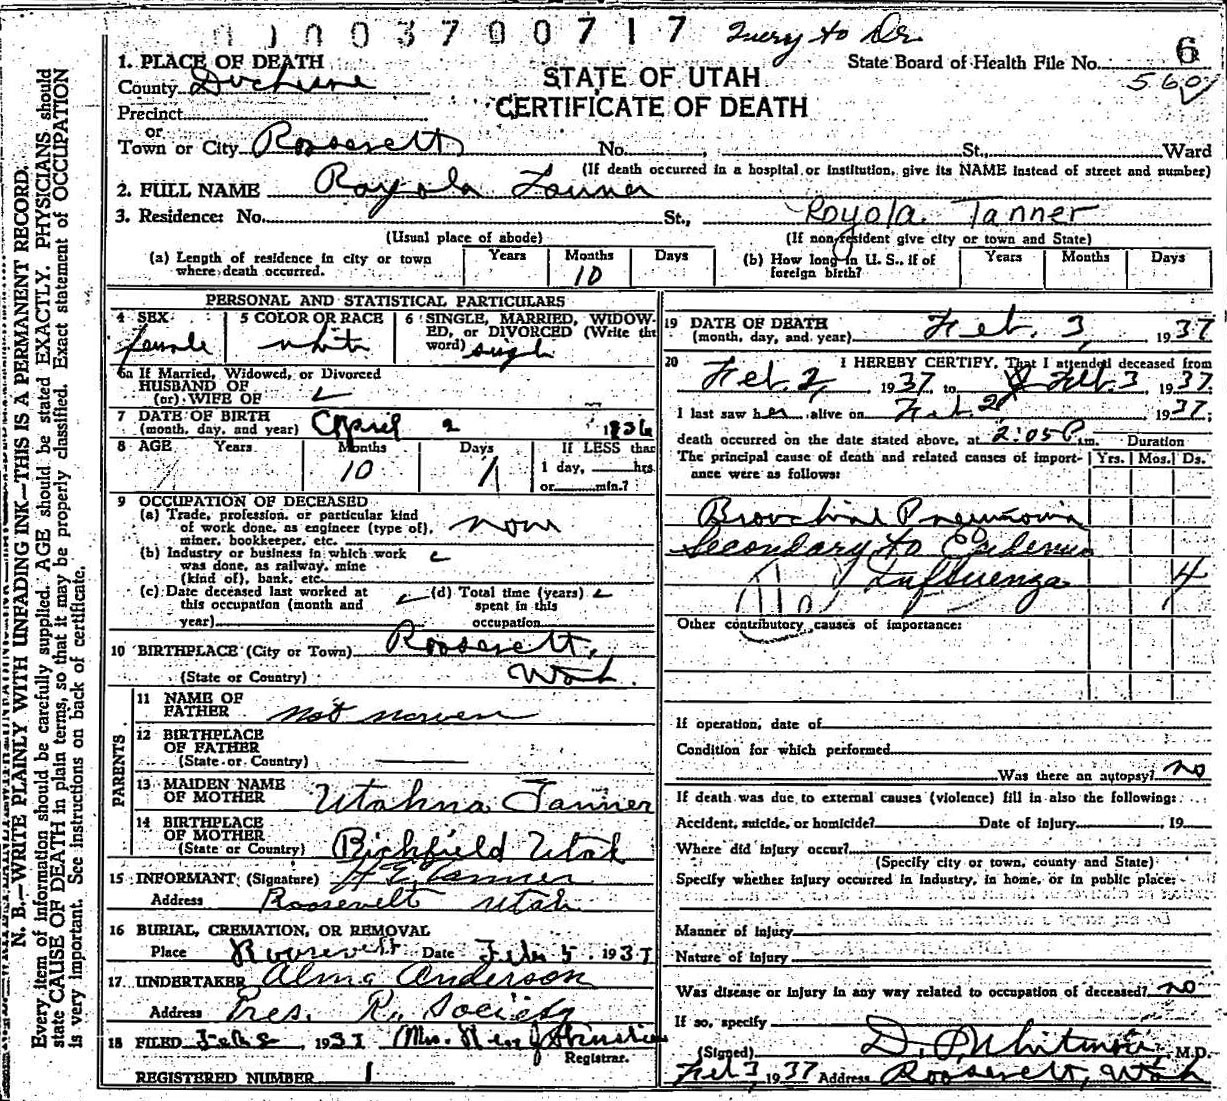 0 1 0 0 3 7 0 0 7 1 7
Query to Dr.
6
State Board of Health File No.
560
1. PLACE OF DEATH
County Duchesne
STATE OF UTAH
CERTIFICATE OF DEATH
Precinct
or
Town or City Roosevelt No. , St., Ward
(If death occurred in a hospital or institution, give its NAME instead of street and number)
2. FULL NAME Royola Tanner
3. Residence: No. St., Royola Tanner
(Usual place of abode) (If non-resident give city or town and State)
(a) Length of residence in city or town where death occurred. Years Months 10 Days
(b) How long in U. S., if of foreign birth? Years Months Days
PERSONAL AND STATISTICAL PARTICULARS
4 SEX female
5 COLOR OR RACE white
6 SINGLE, MARRIED, WIDOWED, or DIVORCED (Write the word) single
6a If Married, Widowed, or Divorced
HUSBAND OF
(or) WIFE OF
7 DATE OF BIRTH
(month, day, and year) April 2 1936
8 AGE Years Months 10 Days 1 If LESS than
1 day, hrs
or min.?
9 OCCUPATION OF DECEASED
(a) Trade, profession, or particular kind
of work done, as engineer (type of), none
miner, bookkeeper, etc.
(b) Industry or business in which work
was done, as railway, mine
(kind of), bank, etc.
(c) Date deceased last worked at
this occupation (month and
year)
(d) Total time (years)
spent in this
occupation
10 BIRTHPLACE (City or Town) Roosevelt,
(State or Country) Utah.
PARENTS
11 NAME OF
FATHER not
12 BIRTHPLACE
OF FATHER
(State or Country)
13 MAIDEN NAME
OF MOTHER Utahna Tanner
14 BIRTHPLACE
OF MOTHER
(State or Country) Richfield Utah
15 INFORMANT (Signature) Tanner
Address Roosevelt Utah
16 BURIAL, CREMATION, OR REMOVAL
Place Roosevelt Date Feb 5, 1937
17 UNDERTAKER Alma Anderson
Address Pres. R. Society
18 FILED Feb 8, 1937 Mrs.
Registrar.
REGISTERED NUMBER 1
19 DATE OF DEATH
(month, day, and year) Feb. 3, 1937
20 I HEREBY CERTIFY, That I attended deceased from
Feb. 2, 1937 to Feb. 3, 1937.
I last saw her alive on Feb. 2 1937;
death occurred on the date stated above, at 2:05 P.m. Duration
The principal cause of death and related causes of importance were as follows: Yrs. Mos. Ds.
Bronchial Pneumonia
Secondary to Epidemic
Influenza 4
Other contributory causes of importance:
If operation, date of
Condition for which performed
Was there an autopsy? no
If death was due to external causes (violence) fill in also the following:
Accident, suicide, or homicide? Date of injury , 19
Where did injury occur?
(Specify city or town, county and State)
Specify whether injury occurred in industry, in home, or in public place:
Manner of injury
Nature of injury
Was disease or injury in any way related to occupation of deceased? no
If so, specify
(Signed) D. P. Whitmore, M.D.
Feb 3, 1937 Address Roosevelt, Utah
N. B.—WRITE PLAINLY WITH UNFADING INK—THIS IS A PERMANENT RECORD.
Every item of information should be carefully supplied. AGE should be stated EXACTLY. PHYSICIANS should
state CAUSE OF DEATH in plain terms, so that it may be properly classified. Exact statement of OCCUPATION
is very important. See instructions on back of certificate.